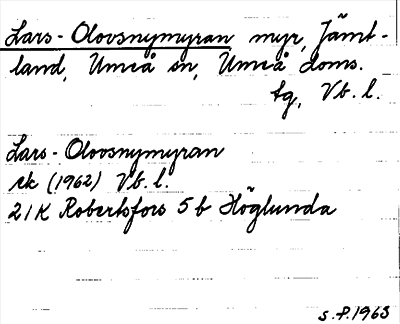 Lars-Olovsnymyran myr, Jämt-
land, Umeå sn, Umeå doms.
tg, Vb. l.
Lars-Olovsnymyran
ek (1962) Vb. l.
21K Robertsfors 5 b Höglunda
S.P. 1963